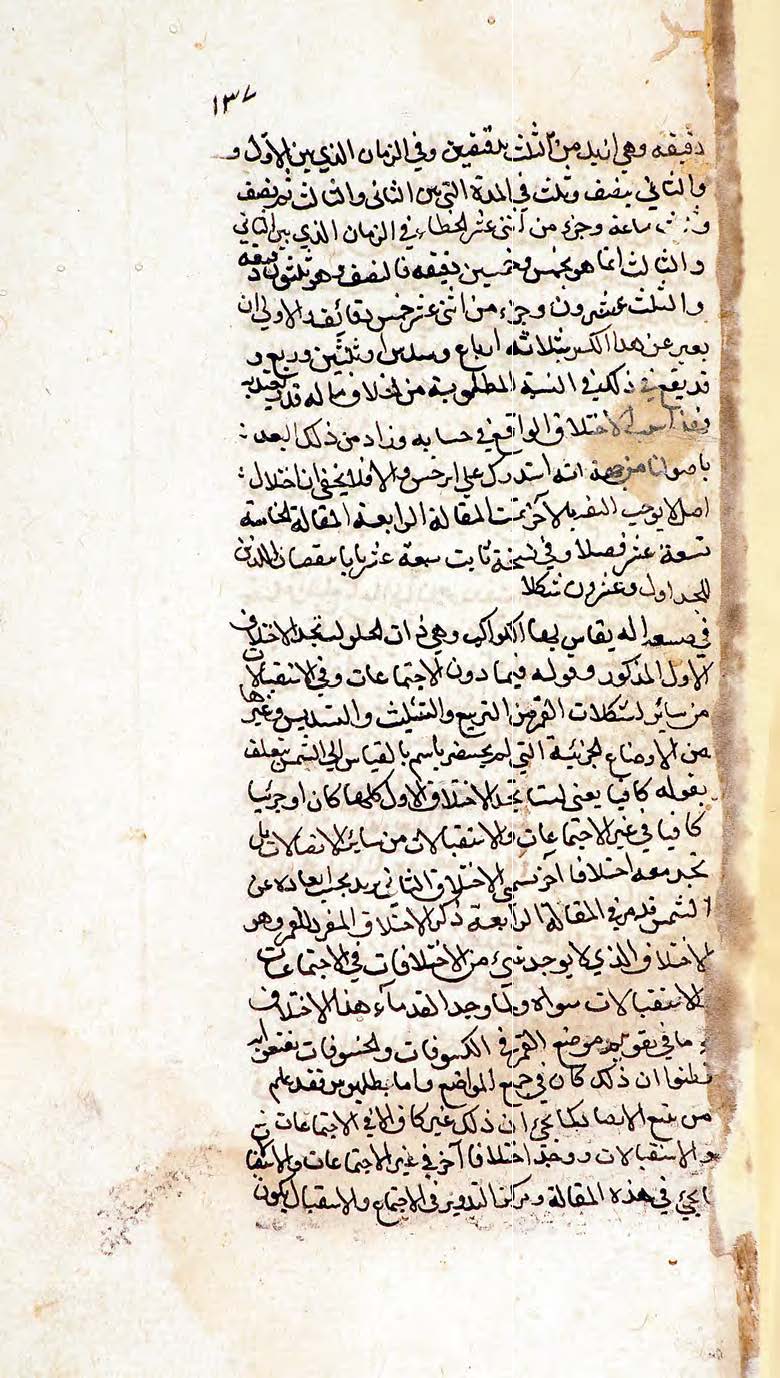 ١٣٧
دقيقه وهي ازيد من ثلث بدقيقتين وفي الزمان الذي بين الاول و
والثاني بنصف وثلث في المدة التي بين الثاني والثالث ثم بنصف
وثلث ساعة وجزء من اثنى عشر الخطاء في الزمان الذي بين الثاني
والثالث انما هو بخمس وخمسين دقيقه فالنصف وهو ثلثون دقيقه
والثلث عشرون وجزء من اثنى عشر خمس دقائق فالاولى ان
يعبر عن هذا الكسر بثلاثة ارباع وسدس او ثلثين وربع و
قد يقع في ذلك في النسبة المطلوبة من اختلاف ما له قدر يعتد به
الاختلاف الواقع في حسابه وزاد من ذلك البعد
باصولنا من جهة انه استدرك على ابرخس والا فلا يخفى ان اختلال
اصل لا يوجب الاخر تمت المقالة الرابعة المقالة الخامسة
تسعة عشر فصلا وفي نسخة ثابت سبعة عشر بابا
للجداول وعشرون شكلا
في صنعة الة يقاس بها الكواكب وهي ذات الحلق لسنا نجد الاختلاف
الاول المذكور وقوله فيما دون الاجتماعات وفي الاستقبالات
من سائر تشكلات القمر من التربيع والتثليث والتسديس وغيرها
من الاوضاع الجزئية التي لم يحضر باسم بالقياس الى الشمس يتعلق
بقوله كافيا يعنى لسنا نجد الاختلاف الاول كلها كان او جزئيا
كافيا في غير الاجتماعات والاستقبالات من سائر الاتصالات بل
نجد معه اختلافا آخر نسمي الاختلاف الثاني يريد بحسب ابعاده عن
الشمس قد مر في المقالة الرابعة ذكر الاختلاف المفرد للقمر وهو
الاختلاف الذي لا يوجد شيء من الاختلافات في الاجتماعات
والاستقبالات سواه ولما وجد القدماء هذا الاختلاف
ما في تقويم موضع القمر في الكسوفات والخسوفات
فظنوا ان ذلك كان في جميع المواضع واما بطلميوس فقد علم
من تتبع الارصاد كما يجيء ان ذلك غير كاف الا في الاجتماعات
والاستقبالات ووجد اختلافا آخر في غير الاجتماعات والاستقبا
يجيء في هذه المقالة ومركز التدوير في الاجتماع والاستقبال يكون